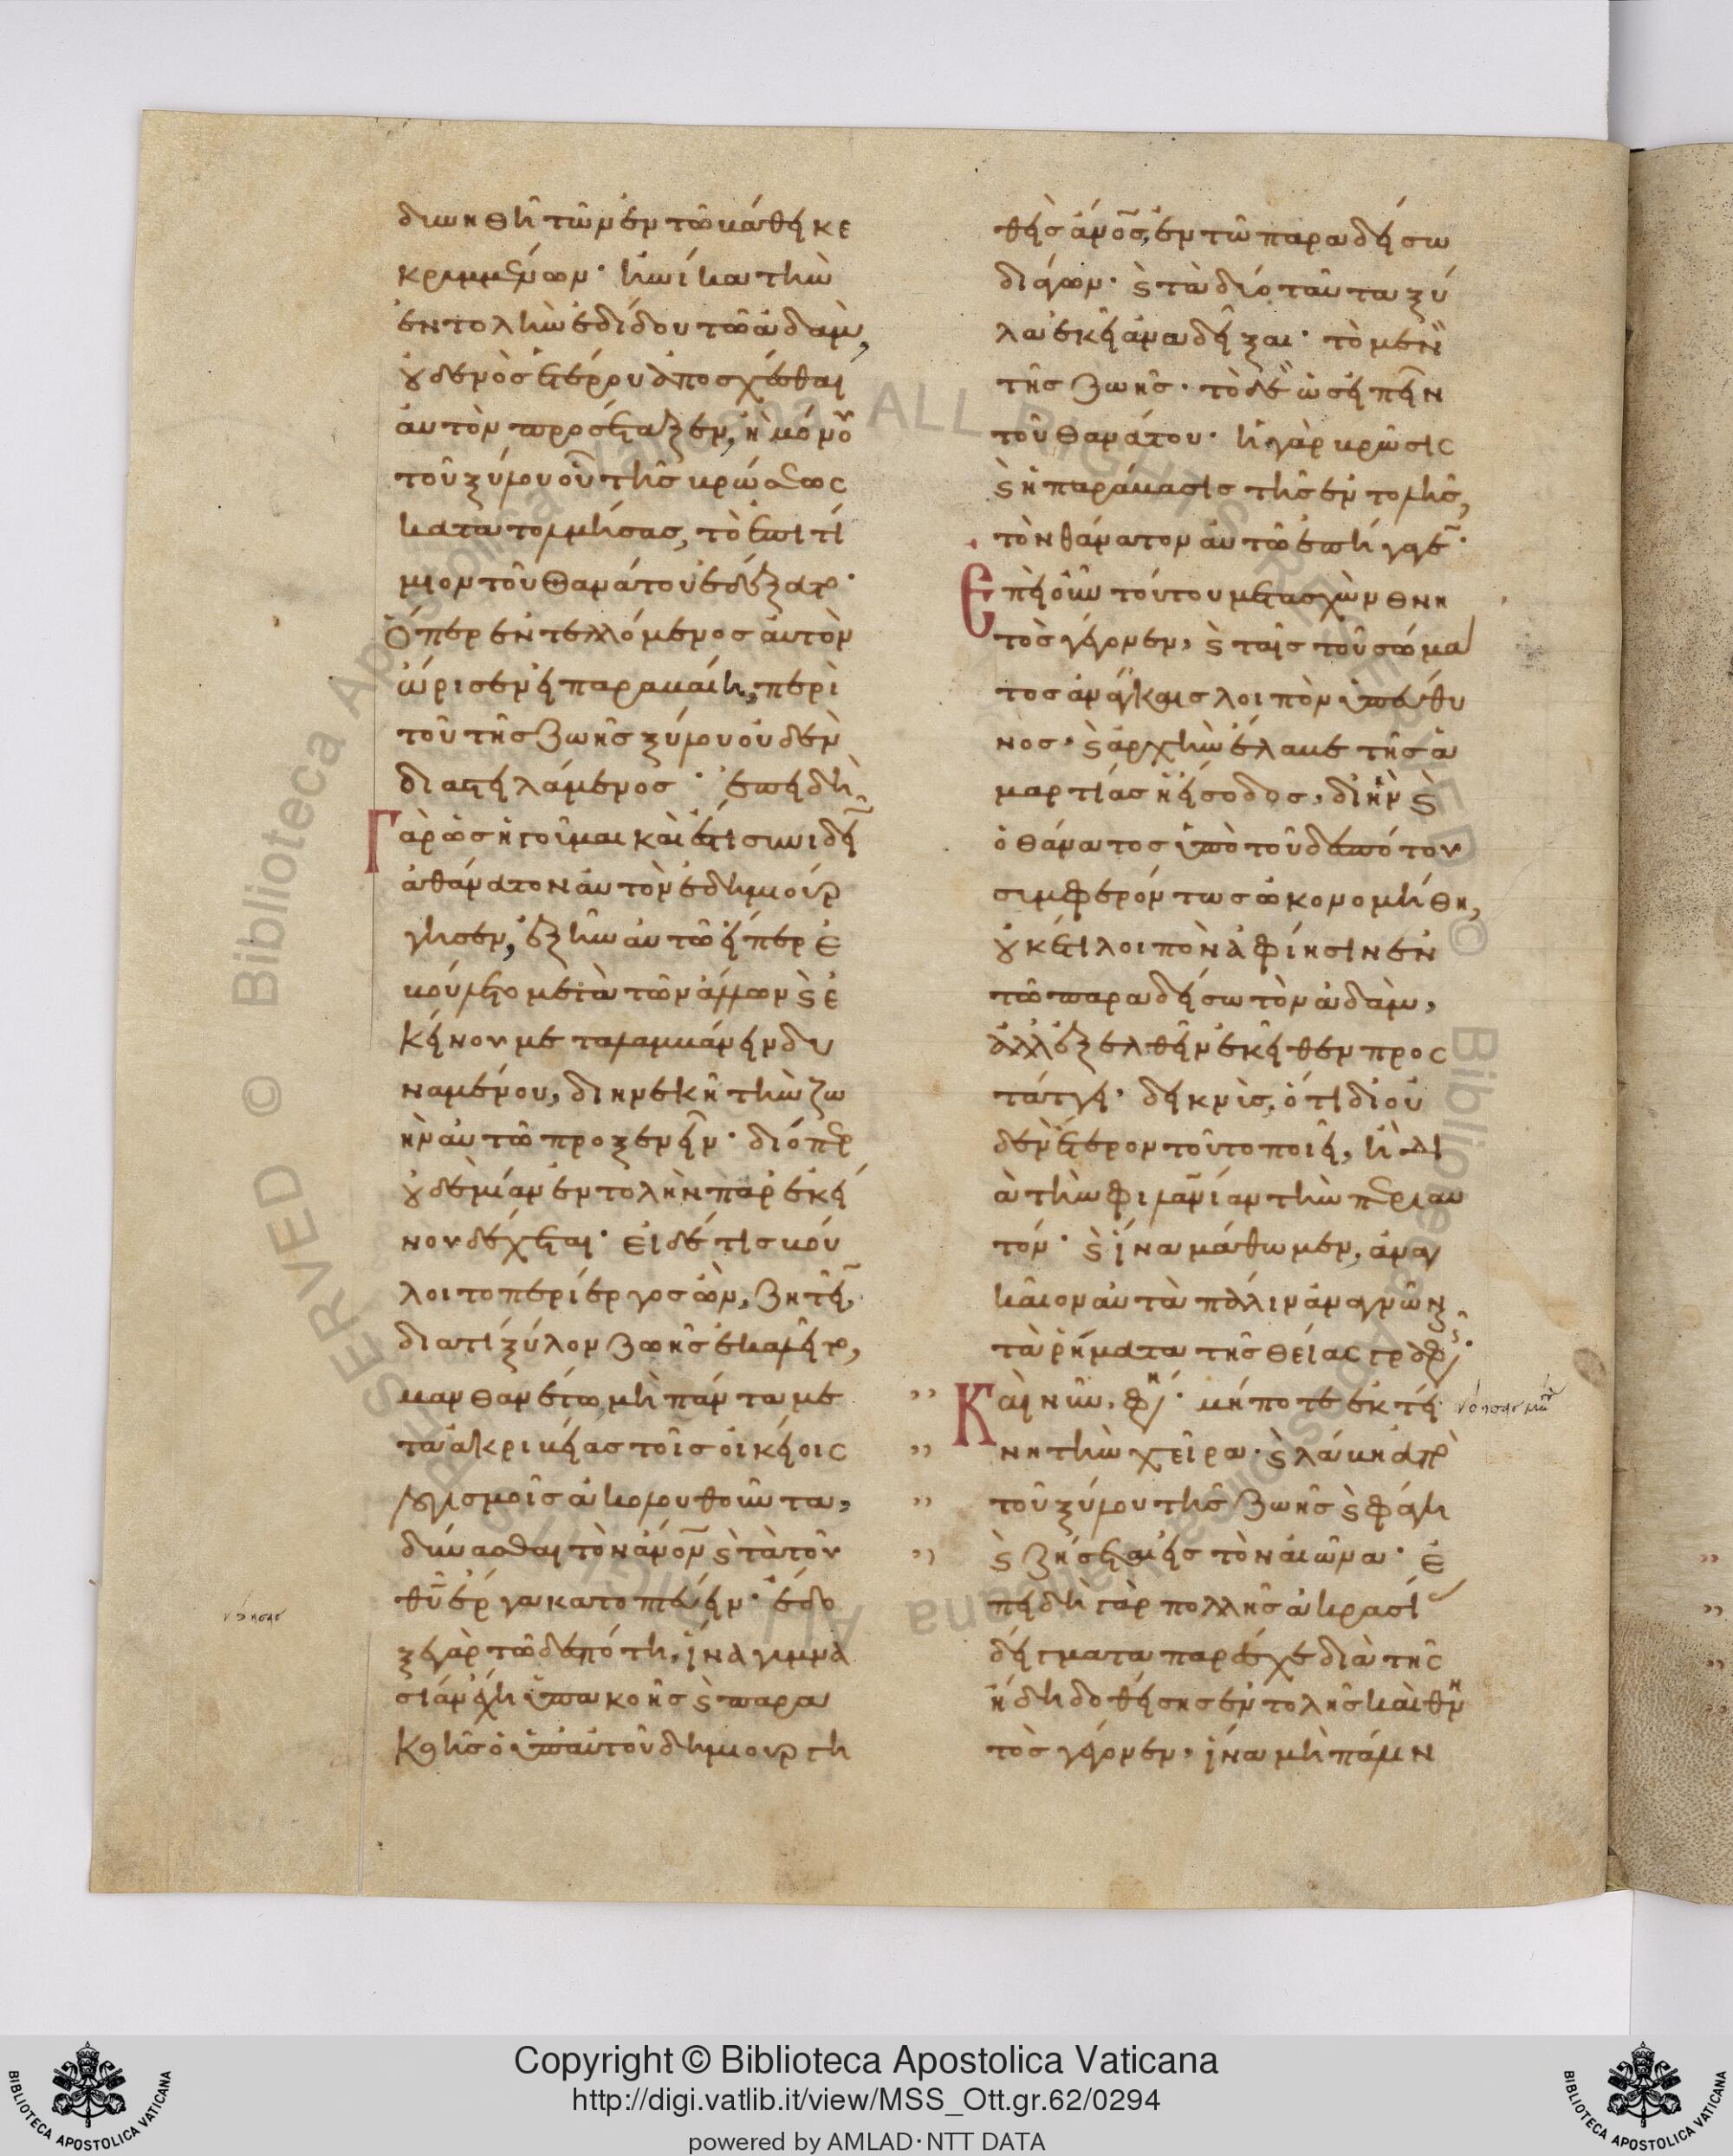 διωχθῆ τῶν ἐν τῶ βάθει κε
κρυμμένων· ἡνίκα τὴν
ἐντολὴν ἐδίδου τῶ ἀδὰμ,
οὐδενὸς ἑτέρου ἀποσχέσθαι
αὐτὸν προσέταξεν, ἢ μόνου
τοῦ ξύλου οὗ τῆς βρώσεως
κατατολμήσας, τὸ ἐπιτί
μιον τοῦ θανάτου ἐδέξατο·
Ὅπερ ἐντελλόμενος αὐτὸν
ὥρισεν εἰ παραβαίη, περὶ
τοῦ τῆς ζωῆς ξύλου οὐδὲν
διαστειλάμενος· ἐπειδὴ
Γὰρ ὡς ἡγοῦμαι καὶ ἔστι συνιδεῖν
ἀθάνατον αὐτὸν ἐδημιούρ
γησεν, ἐξῆν αὐτῶ εἴπερ ἐ
βούλετο μετὰ τῶν ἄλλων καὶ ἐ
κείνου μεταλαμβάνειν δυ
ναμένου, διηνεκῆ τὴν ζω
ὴν αὐτῶ προξενεῖν· διόπερ
οὐδεμίαν ἐντολὴν παρ' ἐκεί
νου δέχεται· εἰ δέ τις βού
λοιτο περίεργος ὢν, ζητεῖν,
διατί ξύλον ζωῆς ἐκαλεῖτο,
μανθανέτω μὴ πάντα με
τὰ ἀκριβείας τοῖς οἰκείοις
λογισμοῖς ἀκολουθοῦντα,
δύνασθαι τὸν ἄνον καὶ τὰ τοῦ
θυ ἔργα κατοπτεύειν· ἔδο
ξε γὰρ τῶ δεσπότη, ἵνα γυμνά
σιον ἔχη ὑπακοῆς καὶ παρα
κοῆς ὁ ὑπ' αὐτοῦ δημιουργη
θεὶς ἄνος, ἐν τῶ παραδείσω
διάγων· καὶ τὰ δύο ταῦτα ξύ
λα ἐκεῖ ἀναδεῖξαι· τὸ μὲν
τῆς ζωῆς· τὸ δὲ ὡς εἰπεῖν
τοῦ θανάτου· ἡ γὰρ βρῶσις
καὶ ἡ παράβασις τῆς ἐντολῆς,
τὸν θάνατον αὐτῶ ἐπήγαγεν·
Ἐπεὶ οὖν τούτου μετασχὼν θνη
τὸς γέγονεν, καὶ ταῖς τοῦ σώμα
τος ἀνάγκαις λοιπὸν ὑπεύθυ
νος· καὶ ἀρχὴν ἔλαβε τῆς ἁ
μαρτίας ἡ εἴσοδος, δι' ἣν καὶ
ὁ θάνατος ὑπὸ τοῦ δεσπότου
συμφερόντως ὠκονομήθη,
οὐκέτι λοιπὸν ἀφίησιν ἐν
τῶ παραδείσω τὸν ἀδὰμ,
ἀλλ' ἐξελθεῖν ἐκεῖθεν προς
τάττει· δεικνὺς, ὅτι δι' οὐ
δὲν ἕτερον τοῦτο ποιεῖ, ἢ δι
ὰ τὴν φιλανίαν τὴν περὶ αυ
τόν· καὶ ἵνα μάθωμεν, αναγ
καῖον αὐτὰ πάλιν ἀναγνῶναι
τὰ ῥήματα τῆς θείας γραφῆς·
Καὶ νῦν, φη· μήποτε ἐκτεί
νη τὴν χεῖρα· καὶ λάβη ἀπὸ
τοῦ ξύλου τῆς ζωῆς καὶ φάγη
καὶ ζήσεται εἰς τὸν αἰῶνα· ἐ
πειδὴ γὰρ πολλῆς ἀκρασίας
δείγματα παρέσχε διὰ τῆς
ἤδη δοθείσης ἐντολῆς καὶ θνη
τὸς γέγονεν, ἵνα μὴ πάλιν
Copyright © Biblioteca Apostolica Vaticana
http://digi.vatlib.it/view/MSS_Ott.gr.62/0294
powered by AMLAD·NTT DATA
BIBLIOTECA APOSTOLICA VATICANA
BIBLIOTECA APOSTOLICA VATICANA